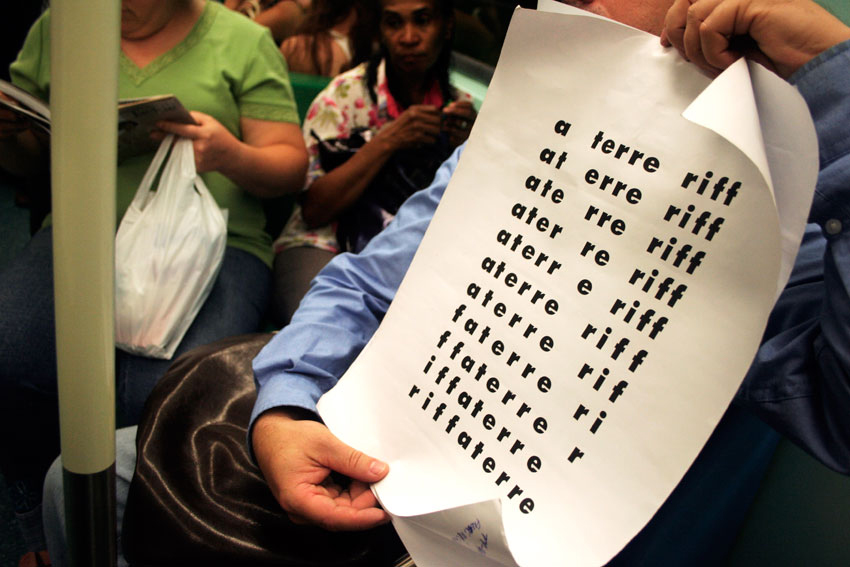 a terre riff
at erre riff
ate rre riff
ater re riff
aterr e riff
aterre riff
aterre rif
faterre ri
ffaterre r
iffaterre
riffaterre